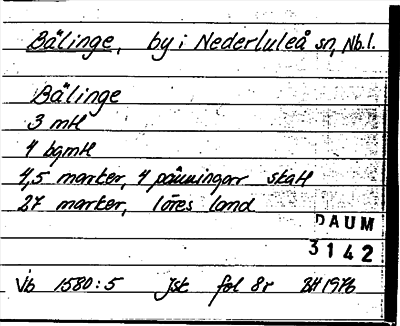 Bälinge, by i Nederluleå sn, Nb.l.
Bälinge
3 mtl
4 bgmtl
4,5 marker, 4 pänningar skatt
27 marker, löres land
DAUM
3142
Vb 1580:5 Jsk fol 8r BH 1976